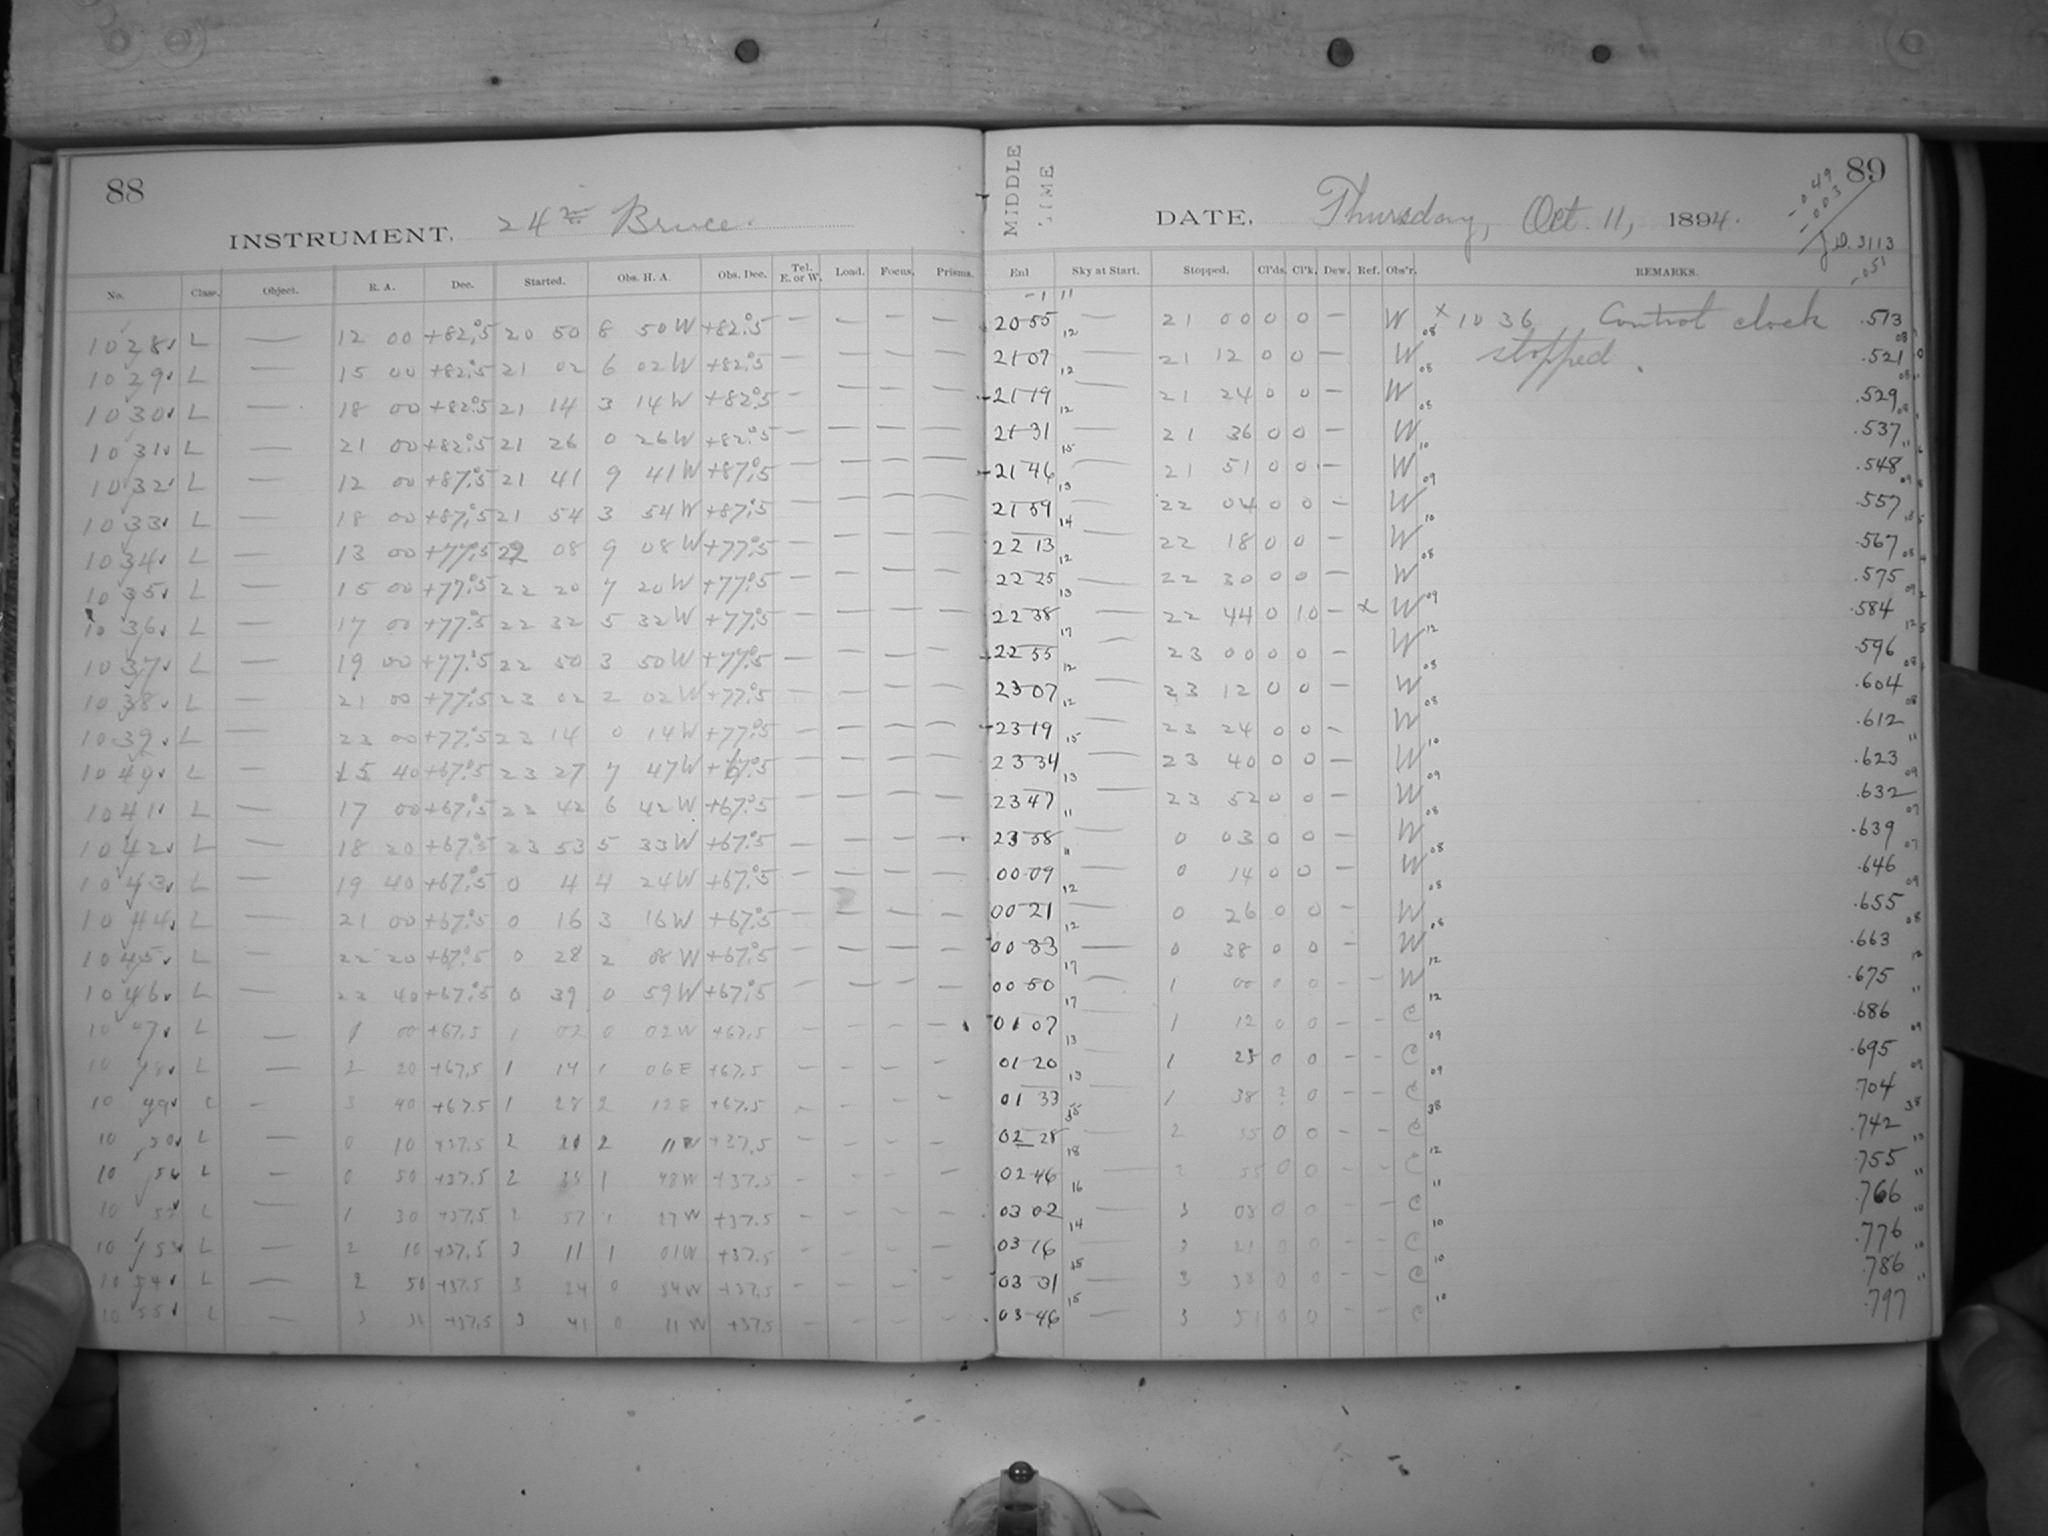 88
INSTRUMENT, 24 in Bruce.
No. Class. Object. R. A. Dec. Started. Obs. H. A. Obs. Dec. Tel. E. or W. Load. Focus. Prisms.
1028 L — 12 00 +82°.5 20 50 8 50 W +82°.5 — — — —
1029 L — 15 00 +82°.5 21 02 6 02 W +82°.5 — — — —
1030 L — 18 00 +82°.5 21 14 3 14 W +82°.5 — — — —
1031 L — 21 00 +82°.5 21 26 0 26 W +82°.5 — — — —
1032 L — 12 00 +87°.5 21 41 9 41 W +87°.5 — — — —
1033 L — 18 00 +87°.5 21 54 3 54 W +87°.5 — — — —
1034 L — 13 00 +77°.5 22 08 9 08 W +77°.5 — — — —
1035 L — 15 00 +77°.5 22 20 7 20 W +77°.5 — — — —
1036 L — 17 00 +77°.5 22 32 5 32 W +77°.5 — — — —
1037 L — 19 00 +77°.5 22 50 3 50 W +77°.5 — — — —
1038 L — 21 00 +77°.5 23 02 2 02 W +77°.5 — — — —
1039 L — 23 00 +77°.5 23 14 0 14 W +77°.5 — — — —
1040 L — 15 40 +67°.5 23 27 7 47 W +67°.5 — — — —
1041 L — 17 00 +67°.5 23 42 6 42 W +67°.5 — — — —
1042 L — 18 20 +67°.5 23 53 5 33 W +67°.5 — — — —
1043 L — 19 40 +67°.5 0 4 4 24 W +67°.5 — — — —
1044 L — 21 00 +67°.5 0 16 3 16 W +67°.5 — — — —
1045 L — 22 20 +67°.5 0 28 2 08 W +67°.5 — — — —
1046 L — 40 +67°.5 0 39 0 59 W +67°.5 — — — —
1047 L — 1 00 +67.5 1 02 0 02 W +67.5 — — — —
1048 L — 2 20 +67.5 1 14 1 06 E +67.5 — — — —
1049 — 3 40 +67.5 1 28 2 12 E +67.5 — — — —
1050 L — 0 10 +37.5 2 2 11 W +37.5 — — — —
1051 L — 0 50 +37.5 2 1 48 W +37.5 — — — —
1052 L — 1 30 +37.5 2 57 1 27 W +37.5 — — — —
1053 L — 2 10 +37.5 3 11 1 01 W +37.5 — — — —
1054 L — 2 50 +37.5 3 24 0 34 W +37.5 — — — —
1055 L — 3 +37.5 3 41 0 11 W +37.5 — — — —
MIDDLE TIME
DATE, Thursday, Oct. 11, 1894.
89
-.049
-.003
J.D. 3113
-.051
Enl Sky at Start. Stopped. Cl'ds. Cl'k. Dew. Ref. Obs'r. REMARKS.
-1 11
20 55 12 — 21 00 0 0 — W 08 × 1036 Control clock .513 08
21 07 12 — 21 12 0 0 — W 08 stopped. .521
21 19 12 — 21 24 0 0 — W 08 .529 08
21 31 15 — 21 36 0 0 — W 10 .537 11
21 46 13 — 21 51 0 0 — W 09 .548 09
21 59 14 — 22 04 0 0 — W 10 .557 10
22 13 12 — 22 18 0 0 — W 08 .567 08
22 25 13 — 22 30 0 0 — W 09 .575 09
22 38 17 — 22 44 0 10 — × W 12 .584 12
22 55 12 — 23 00 0 0 — W 08 .596 08
23 07 12 — 23 12 0 0 — W 08 .604 08
23 19 15 — 23 24 0 0 — W 10 .612 11
23 34 13 — 23 40 0 0 — W 09 .623 09
23 47 11 — 23 52 0 0 — W 08 .632 07
23 58 11 — 0 03 0 0 — W 08 .639 07
00 09 12 — 0 14 0 0 — W 08 .646 09
00 21 12 — 0 26 0 0 — W 08 .655 08
00 33 17 — 0 38 0 0 — W 12 .663 12
00 50 17 — 1 00 0 0 — — W 12 .675 11
01 07 13 — 1 12 0 0 — — C 09 .686 09
01 20 13 — 1 25 0 0 — — C 09 .695 09
01 33 55 — 1 38 ? 0 — — C 38 .704 38
02 28 18 — 2 0 0 — — C 12 .742 13
02 46 16 — 2 0 0 — — C 11 .755 11
03 02 14 — 3 0 0 — — C 10 .766 10
03 16 15 — 3 21 0 0 — — C 10 .776 10
03 31 15 — 3 38 0 0 — — C 10 .786 11
03 46 — 3 51 0 0 — — C .797